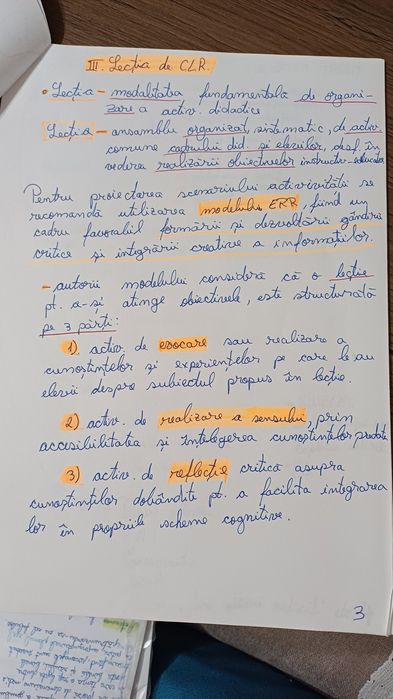 III. Lecția de CLR.
• Lecția – modalitatea fundamentală de organi-
zare a activ. didactice
Lecția – ansamblu organizat, sistematic, de activ.
comune cadrului did. și elevilor, desf. în
vederea realizării obiectivelor instructiv-educative
Pentru proiectarea scenariului activității se
recomandă utilizarea modelului ERR, fiind un
cadru favorabil formării și dezvoltării gândirii
critice și integrării creative a informațiilor.
– autorii modelului consideră că o lecție
pt. a-și atinge obiectivele, este structurată
pe 3 părți:
1) activ. de evocare sau realizare a
cunoștințelor și experiențelor pe care le au
elevii despre subiectul propus în lecție.
2) activ. de realizare a sensului, prin
accesibilitatea și înțelegerea cunoștințelor predate
3) activ. de reflecție critică asupra
cunoștințelor dobândite pt. a facilita integrarea
lor în propriile scheme cognitive.
3